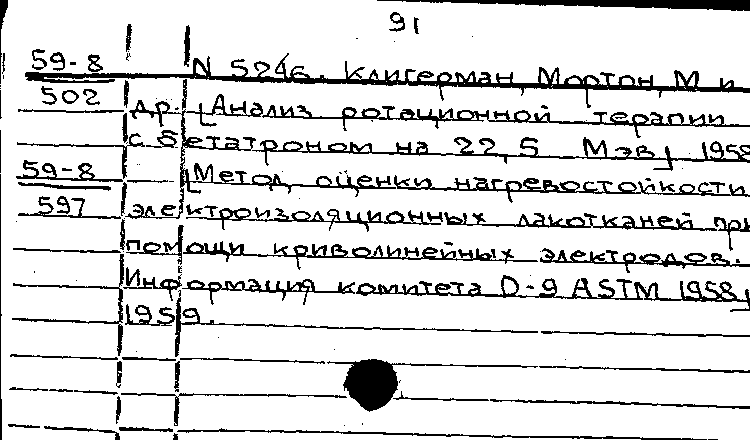 91
59-8 N 5246. Клигерман, Мортон, М и
502 др. [Анализ ротационной терапии
с бетатроном на 22,5 Мэв] 1958
59-8 [Метод оценки нагревостойкости
597 электроизоляционных лакотканей при
помощи криволинейных электродов.
Информация комитета D-9 ASTM 1958]
1959.